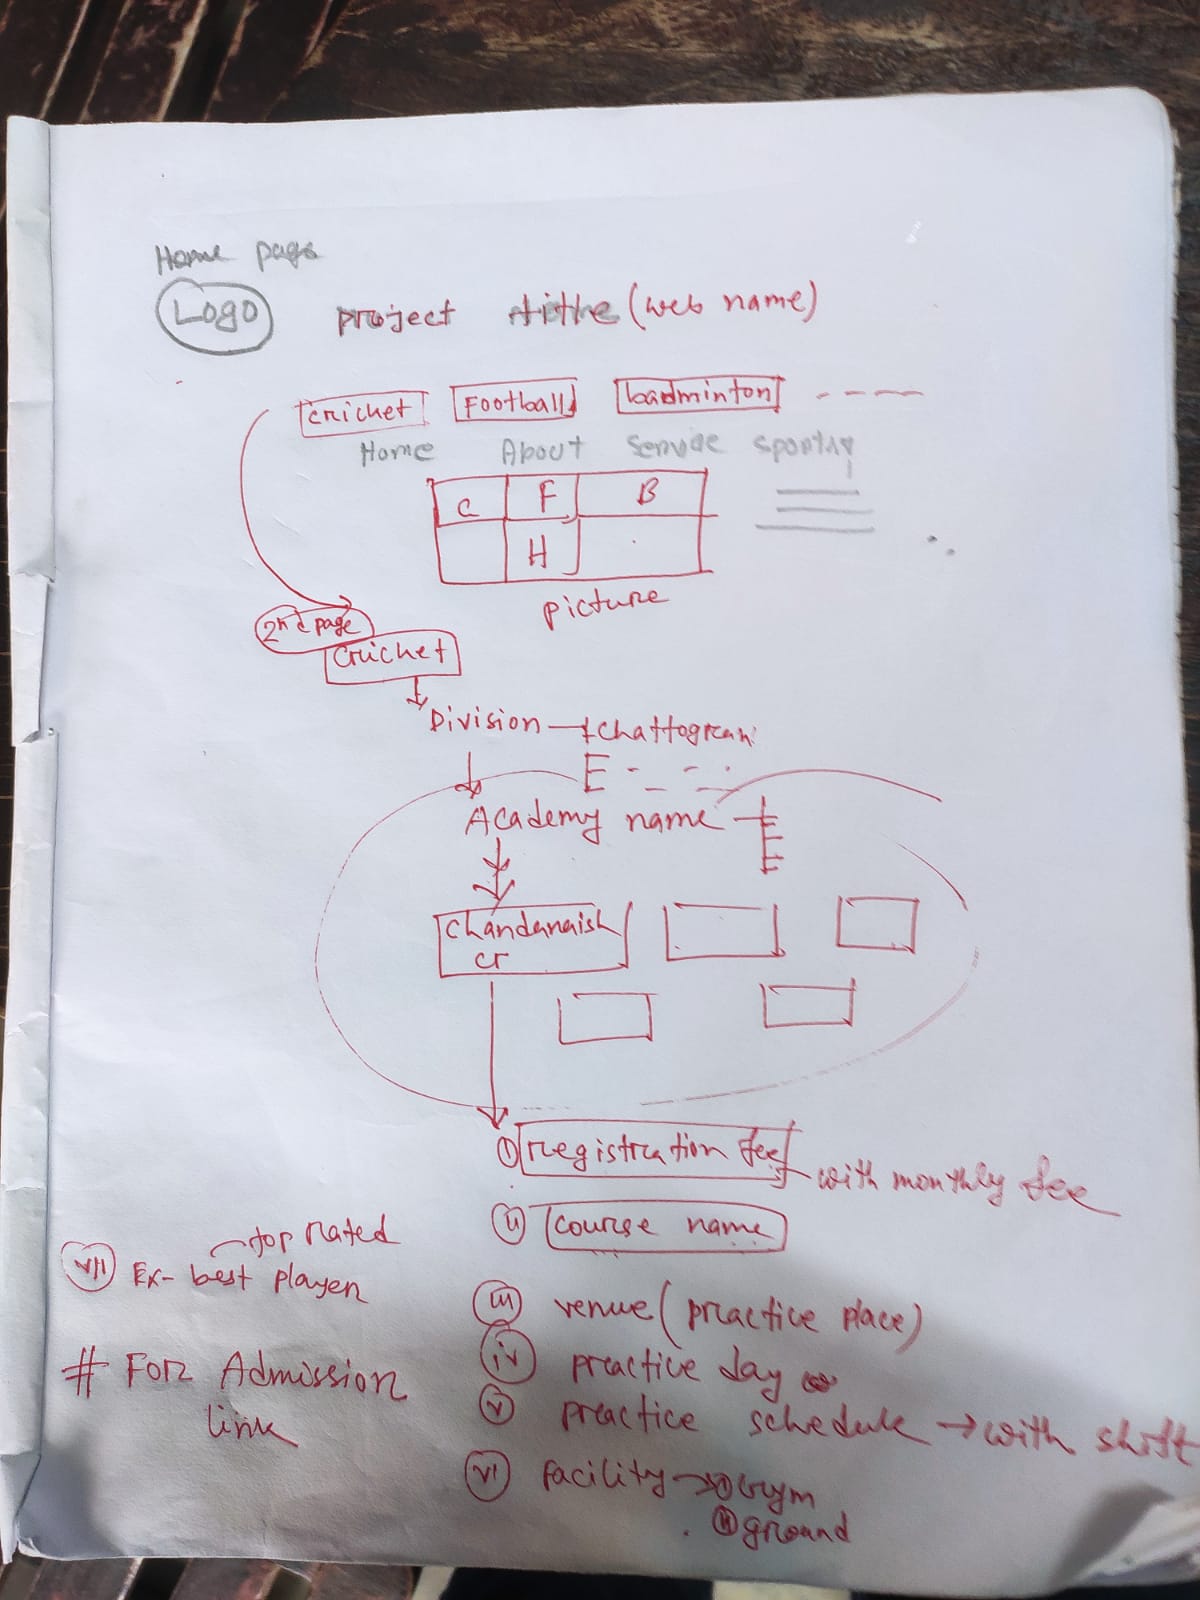 Home page
Logo
project title (web name)
cricket Football badminton - - - -
Home About Service
C F B
H
picture
2nd page
Cricket
Division
Academy name
Chandanaish
cr
① Registration fee with monthly fee
ii course name
iii venue (practice place)
iv practice day
v practice schedule → with shift
vi facility → i gym
ii ground
top rated
vii Ex- best player
# For Admission
link